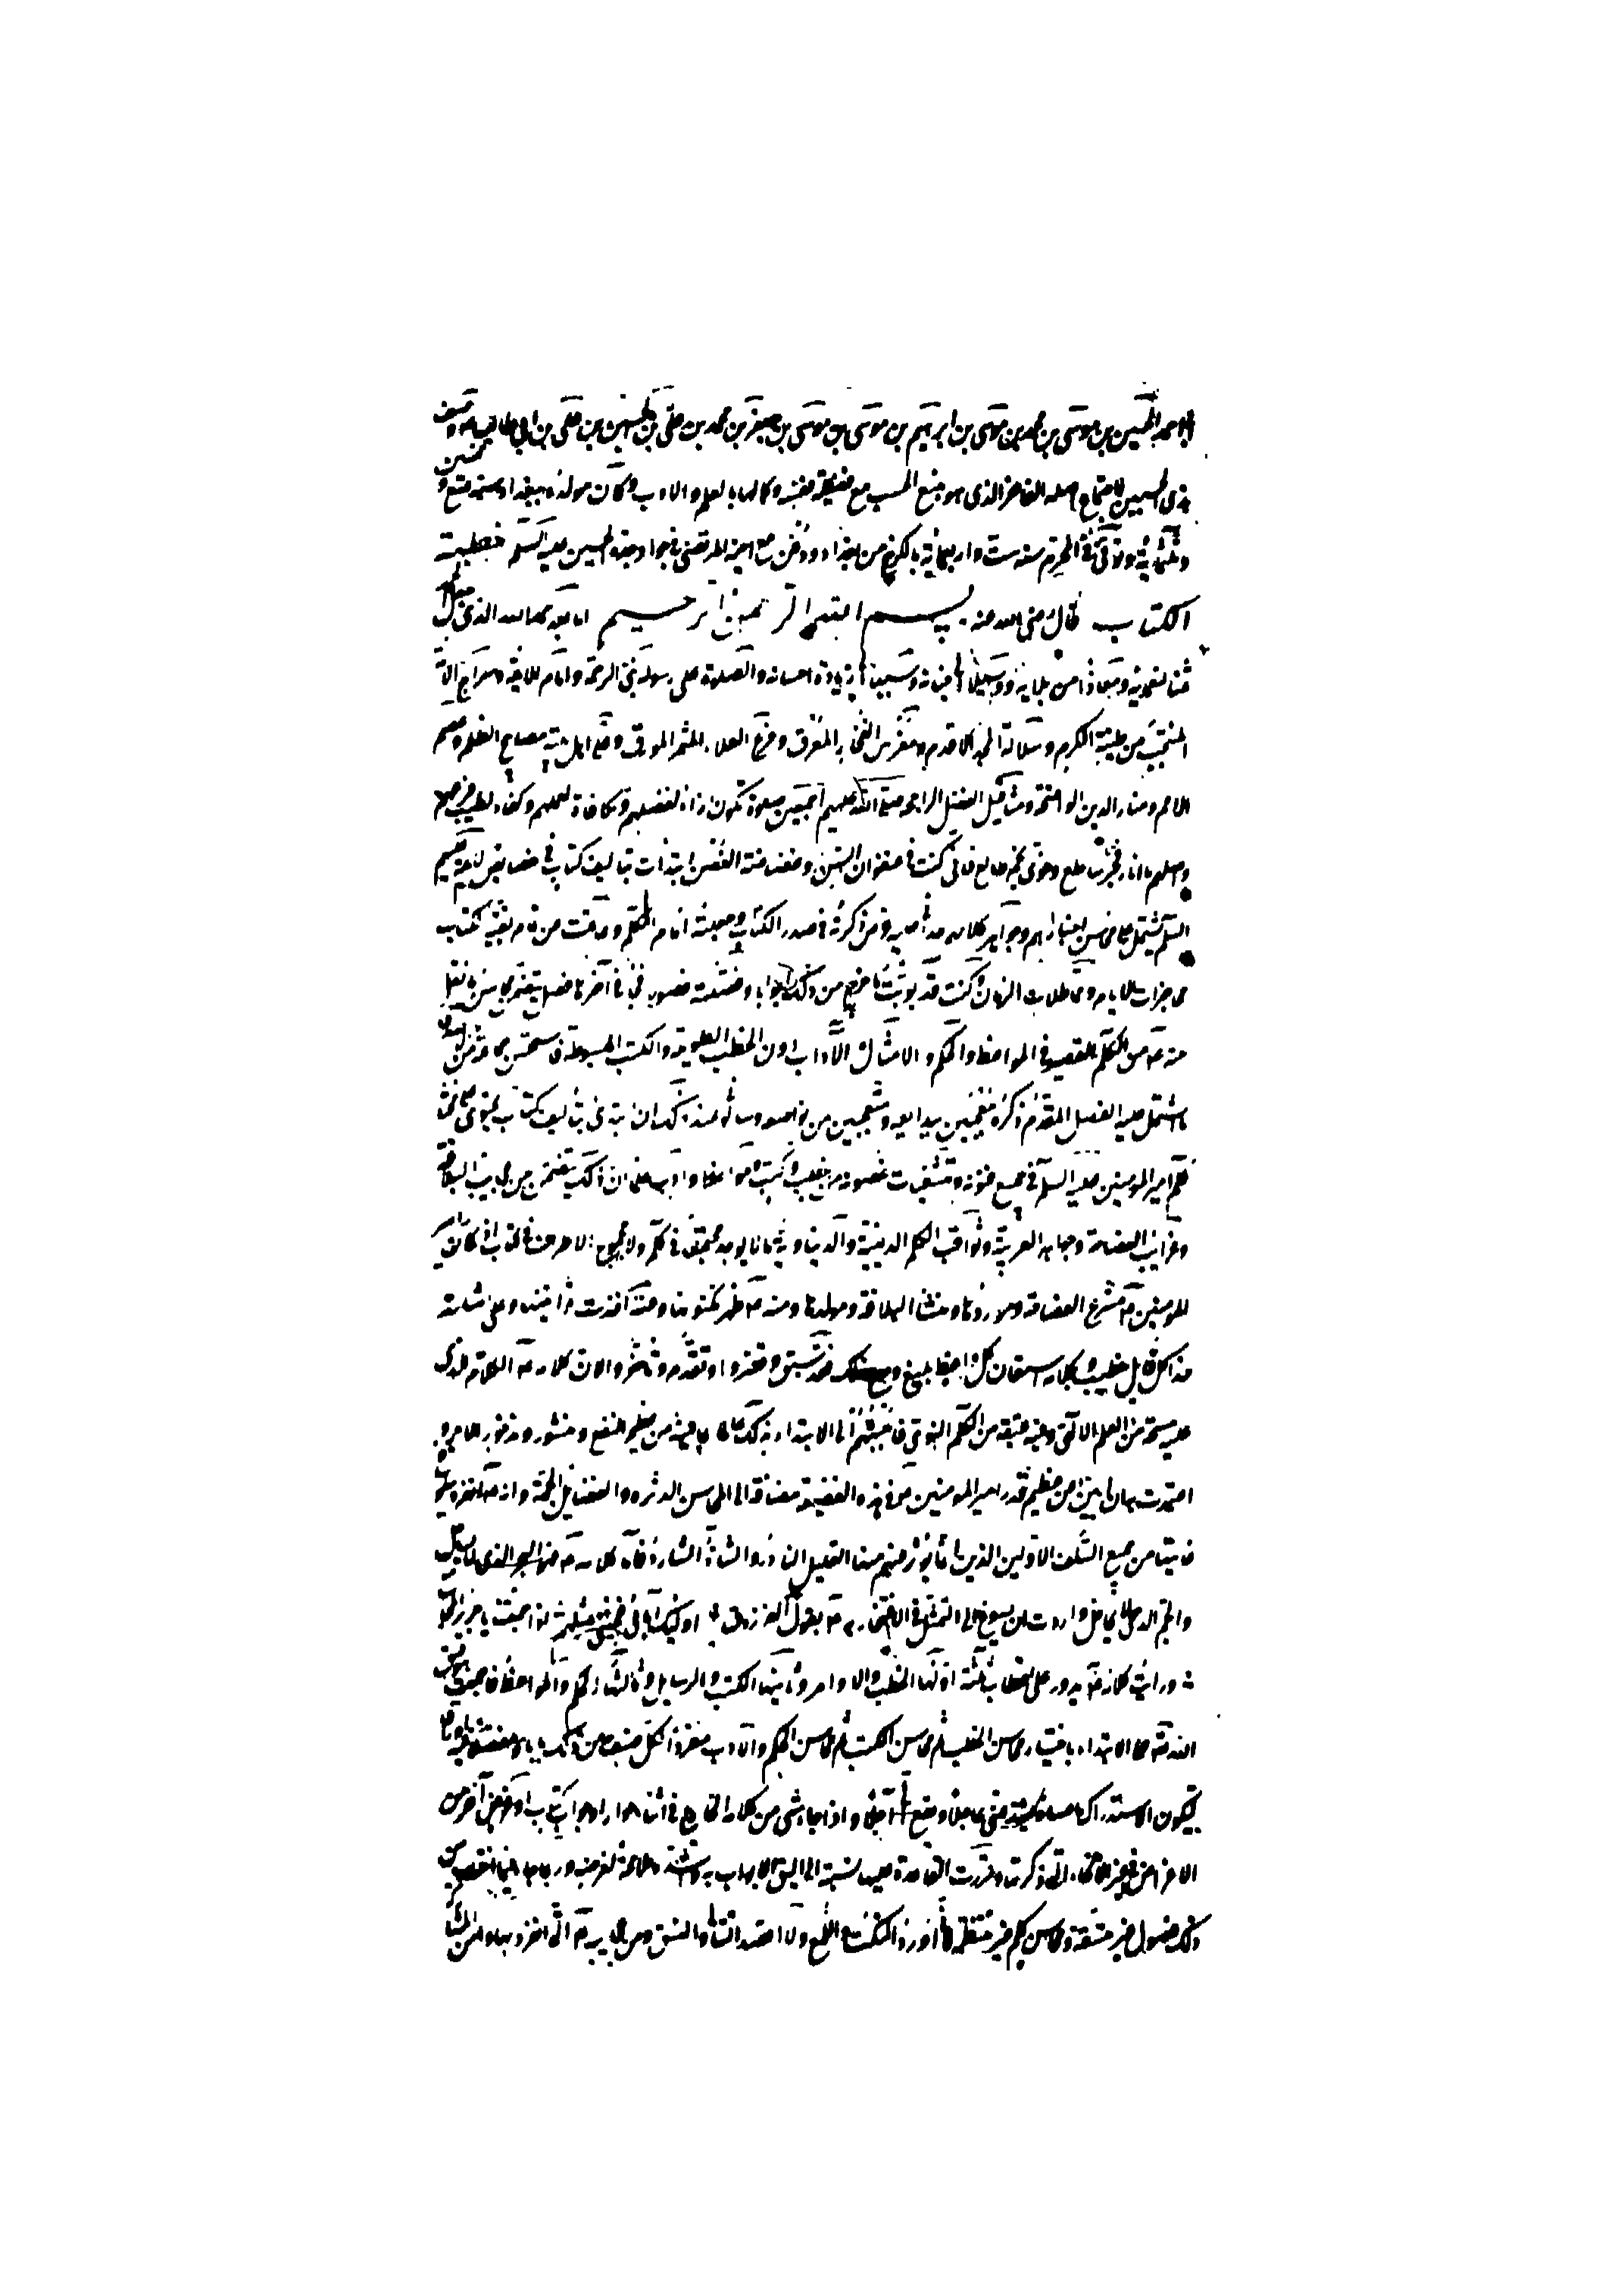 ابو احمد الحسين بن موسى بن محمد بن موسى بن ابراهيم بن موسى بن جعفر بن محمد بن علي بن الحسين بن علي بن ابي طالب
بذي الحسبين لاجتماع اصله الفاخر الذي هو منبع الحسب مع فضيلة نفسه وكمالها بالعلم والادب وكان مولده ببغداد سنة تسع وخمسين
وثلثمائة وتوفي في المحرم سنة ست واربعمائة بالكرخ من بغداد ودفن مع اخيه المرتضى في جوار جده الحسين عليه السلم خطبة
الكتاب قال رضي الله عنه بسم الله الرحمن الرحيم اما بعد حمد الله الذي جعل الحمد
ثمنا لنعمائه ومعاذا من بلائه ووسيلا الى جنانه وسببا لزيادة احسانه والصلوة على رسوله نبي الرحمة وامام الائمة وسراج الامة
المنتجب من طينة الكرم وسلالة المجد الاقدم ومغرس الفخار المعرق وفرع العلاء المثمر المورق وعلى اهل بيته مصابيح الظلم وعصم
الامم ومنار الدين الواضحة ومثاقيل الفضل الراجحة صلى الله عليهم اجمعين صلوة تكون ازاء لفضلهم ومكافاة لعملهم وكفاء لطيب فرعهم
واصلهم ما انار فجر ساطع وخوى نجم طالع فاني كنت في عنفوان السن وغضاضة الغصن ابتدات بتاليف كتاب في خصايص الائمة عليهم
السلم يشتمل على محاسن اخبارهم وجواهر كلامهم حداني عليه غرض ذكرته في صدر الكتاب وجعلته امام الكلام وعاقت عن اتمام بقية الكتاب
محاجزات الايام ومماطلات الزمان وكنت قد بوبت ما خرج من ذلك ابوابا وفصلته فصولا فجاء في آخرها فصل يتضمن محاسن ما نقل
عنه ع من الكلم القصير في المواعظ والحكم والامثال والآداب دون الخطب الطويلة والكتب المبسوطة فاستحسن جماعة من الاصدقاء
ما اشتمل عليه الفصل المقدم ذكره معجبين ببدايعه ومتعجبين من نواصعه وسالوني عند ذلك ان ابتدئ بتاليف كتاب يحتوي على مختار
كلام امير المؤمنين عليه السلم في جميع فنونه ومتشعبات غصونه من خطب وكتب ومواعظ وادب علما ان ذلك يتضمن من عجايب البلاغة
وغرايب الفصاحة وجواهر العربية وثواقب الكلم الدينية والدنياوية ما لا يوجد مجتمعا في كلام ولا مجموع الاطراف في كتاب اذ كان امير
المؤمنين ع مشرع الفصاحة وموردها ومنشا البلاغة ومولدها ومنه ع ظهر مكنونها وعنه اخذت قوانينها وعلى امثلته
حذا كل قايل خطيب وبكلامه استعان كل واعظ بليغ ومع ذلك فقد سبق وقصروا وتقدم وتاخروا لان كلامه ع الكلام الذي
عليه مسحة من العلم الالهي وفيه عبقة من الكلام النبوي فاجبتهم الى الابتداء بذلك عالما بما فيه من عظيم النفع ومنشور الذكر ومذخور الاجر و
اعتمدت به ان ابين من عظيم قدر امير المؤمنين ع في هذه الفضيلة مضافة الى المحاسن الدثرة والفضايل الجمة وانه ع انفرد ببلوغ
غايتها من جميع السلف الاولين الذين انما يؤثر عنهم منها القليل النادر والشاذ الشارد فاما كلامه ع فهو البحر الذي لا يساجل
والجم الذي لا يحافل واردت ان يسوغ لي التمثل في الافتخار به ع بقول الفرزدق اولئك آبائي فجئني بمثلهم اذا جمعتنا يا جرير المجامع
ورايت كلامه ع يدور على اقطاب ثلثة اولها الخطب والاوامر وثانيها الكتب والرسايل وثالثها الحكم والمواعظ فاجمعت بتوفيق
الله تع على الابتداء باختيار محاسن الخطب ثم محاسن الكتب ثم محاسن الحكم والادب مفردا لكل صنف من ذلك بابا ومفصلا فيه اوراقا
لتكون لاستدراك ما عساه يشذ عني عاجلا ويقع الي آجلا واذا جاء شيء من كلامه الخارج في اثناء حوار او جواب كتاب او غرض آخر من
الاغراض في غير الانحاء التي ذكرتها وقررت القاعدة عليها نسبته الى اليق الابواب به واشدها ملامحة لغرضه وربما جاء فيما اختاره من
ذلك فصول غير متسقة ومحاسن كلم غير منتظمة لاني اورد النكت واللمع ولا اقصد التتالي والنسق ومن عجايبه ع التي انفرد بها وامن المشاركة